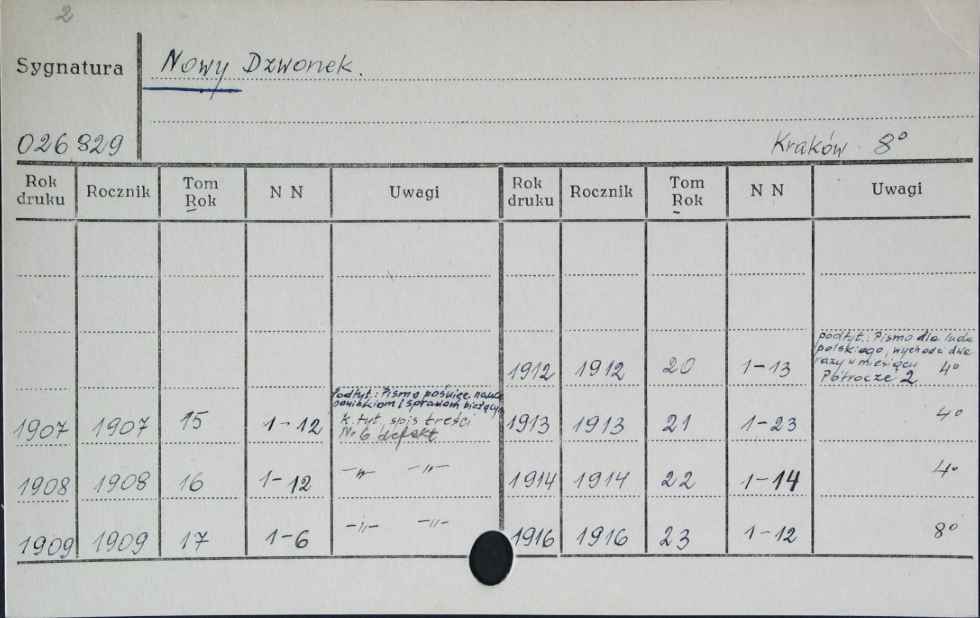 2
Sygnatura
Nowy Dzwonek.
026829
Kraków 8°
Rok druku Rocznik Tom Rok N N Uwagi Rok druku Rocznik Tom Rok N N Uwagi
1912 1912 20 1-13 podtyt.: Pismo dla ludu
polskiego, wychodzi dwa
razy w miesiącu 4°
Półrocze 2
1907 1907 15 1-12 Podtyt.: Pismo poświęc.
i sprawom bieżącym
k. tyt. spis treści
Nr 6 defekt
1913 1913 21 1-23 4°
1908 1908 16 1-12 -"- -"- 1914 1914 22 1-14 4°
1909 1909 17 1-6 -"- -"- 1916 1916 23 1-12 8°